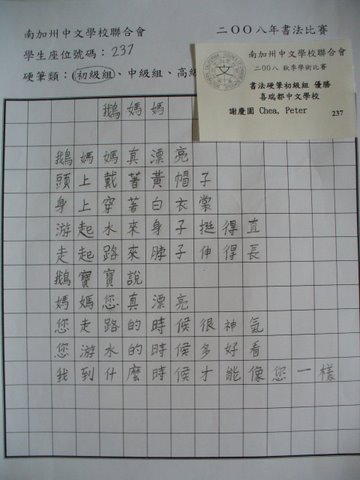 南加州中文學校聯合會
二〇〇八年書法比賽
學生座位號碼：237
硬筆類：(初級組)、中級組、高級
南加州中文學校聯合會
二〇〇八 秋季學術比賽
書法硬筆初級組 優勝
喜瑞都中文學校
謝慶圍 Chea, Peter
237
鵝媽媽
鵝媽媽真漂亮
頭上戴著黃帽子
身上穿著白衣裳
游起水來身子挺得直
走起路來脖子伸得長
鵝寶寶說
媽媽您真漂亮
您走路的時候很神氣
您游水的時候多好看
我到什麼時候才能像您一樣